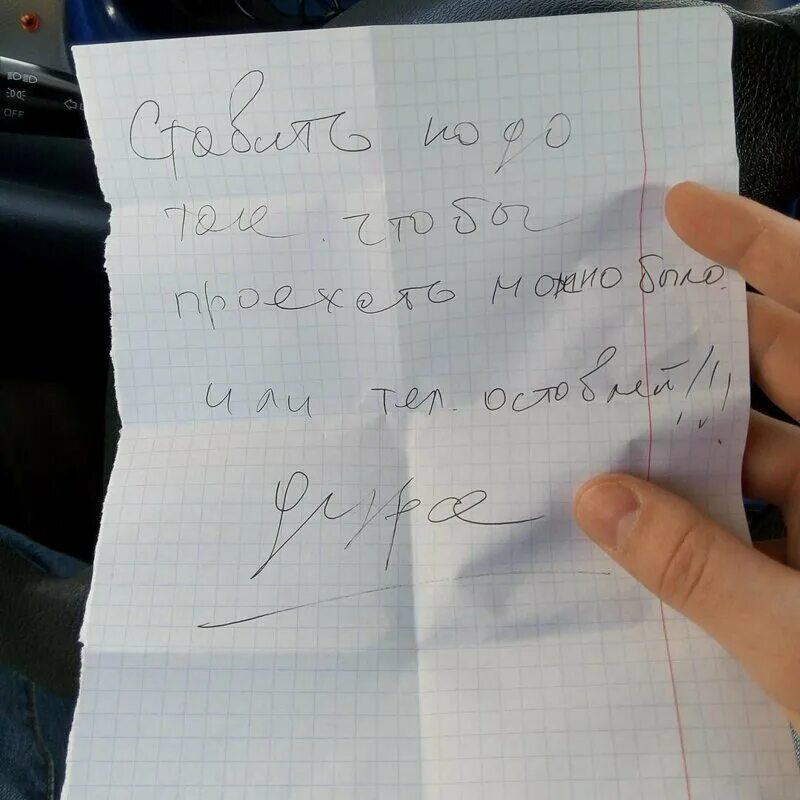 OFF
Ставить надо
так чтобы
проехать можно было.
или тел. оставляй!!!
дура